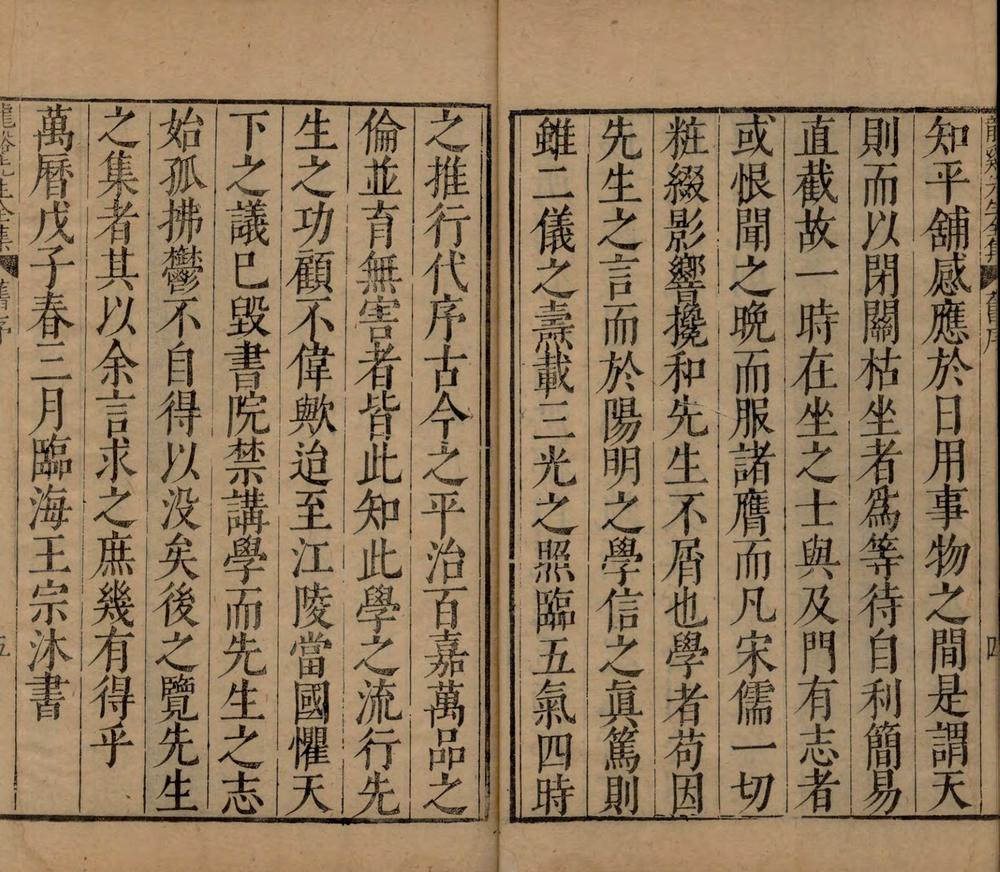 知平舖感應於日用事物之間是謂天
則而以閉關枯坐者爲等待自利簡易
直截故一時在坐之士與及門有志者
或恨聞之晚而服諸膺而凡宋儒一切
粧綴影響攙和先生不屑也學者苟因
先生之言而於陽明之學信之眞篤則
雖二儀之壽載三光之照臨五氣四時
之推行代序古今之平治百嘉萬品之
倫並育無害者皆此知此學之流行先
生之功顧不偉歟迨至江陵當國懼天
下之議已毀書院禁講學而先生之志
始孤拂鬱不自得以没矣後之覽先生
之集者其以余言求之庶幾有得乎
萬曆戊子春三月臨海王宗沐書
龍谿先生全集 舊序 五